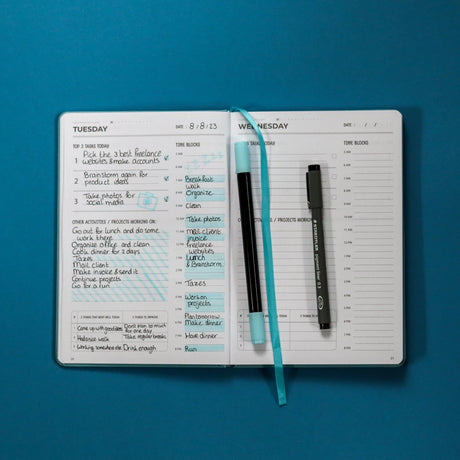 TUESDAY
DATE 8/8/23
TOP 3 TASKS TODAY
TIME BLOCKS
1 Pick the 3 best freelance
websites & make accounts
2 Brainstorm again for
product ideas
3 Take photos for
social media
OTHER ACTIVITIES / PROJECTS WORKING ON:
Go out for lunch and do some
work there
Organise office and clean
Cook dinner for 2 days
Taxes
Mail client
Make invoice & send it
Continue projects
Go for a run
3 THINGS THAT WENT WELL TODAY
3 THINGS TO IMPROVE
1 Came up with good idea
Don't plan so much
for one day
2 Had time walk
Take regular breaks
3 Working somewhere else
Drink enough
Breakfast
walk
Organize
Clean
Take photos
Mail client
invoice
freelance
websites
Lunch
& Brainstorm
Taxes
Work on
projects
Plan tomorrow
Make dinner
Have dinner
Run
WEDNESDAY
DATE / /
TOP 3 TASKS TODAY
TIME BLOCKS
OTHER ACTIVITIES / PROJECTS WORKING
STAEDTLER
pigment liner 0.3